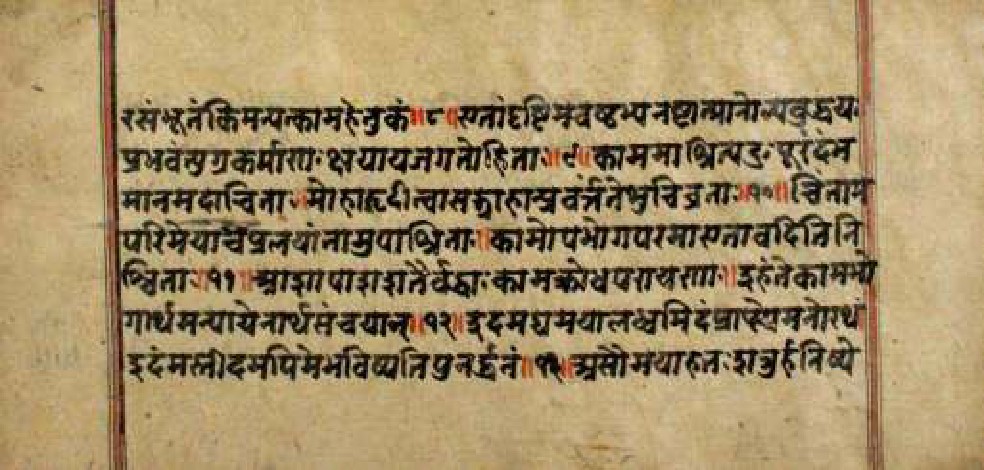 रसंभूतंकिमन्यत्कामहेतुकं॥८॥एतांदृष्टिमवष्टभ्यनष्टात्मानोल्पबुद्धय
प्रभवंत्युग्रकर्माणाःक्षयायजगतोहिताः॥९॥काममाश्रित्यदुःपूरंदंभ
मानमदान्विताः।मोहाद्गृहीत्वासद्ग्राहान्प्रवर्त्तंतेशुचिव्रताः॥१०॥चिंताम
परिमेयांचप्रलयांतामुपाश्रिताः।कामोपभोगपरमाएतावदितिनि
श्चिताः॥११॥आशापाशशतैर्बद्धाःकामक्रोधपरायणाः।इहंतेकामभो
गार्थमन्यायेनार्थसंचयान्॥१२॥इदमद्यमयालब्धमिदंप्राप्स्येमनोरथं
इदंमस्तीदमपिमेभविष्यतिपुनर्द्धनं॥१३॥असौमयाहतःशत्रुर्हनिष्ये